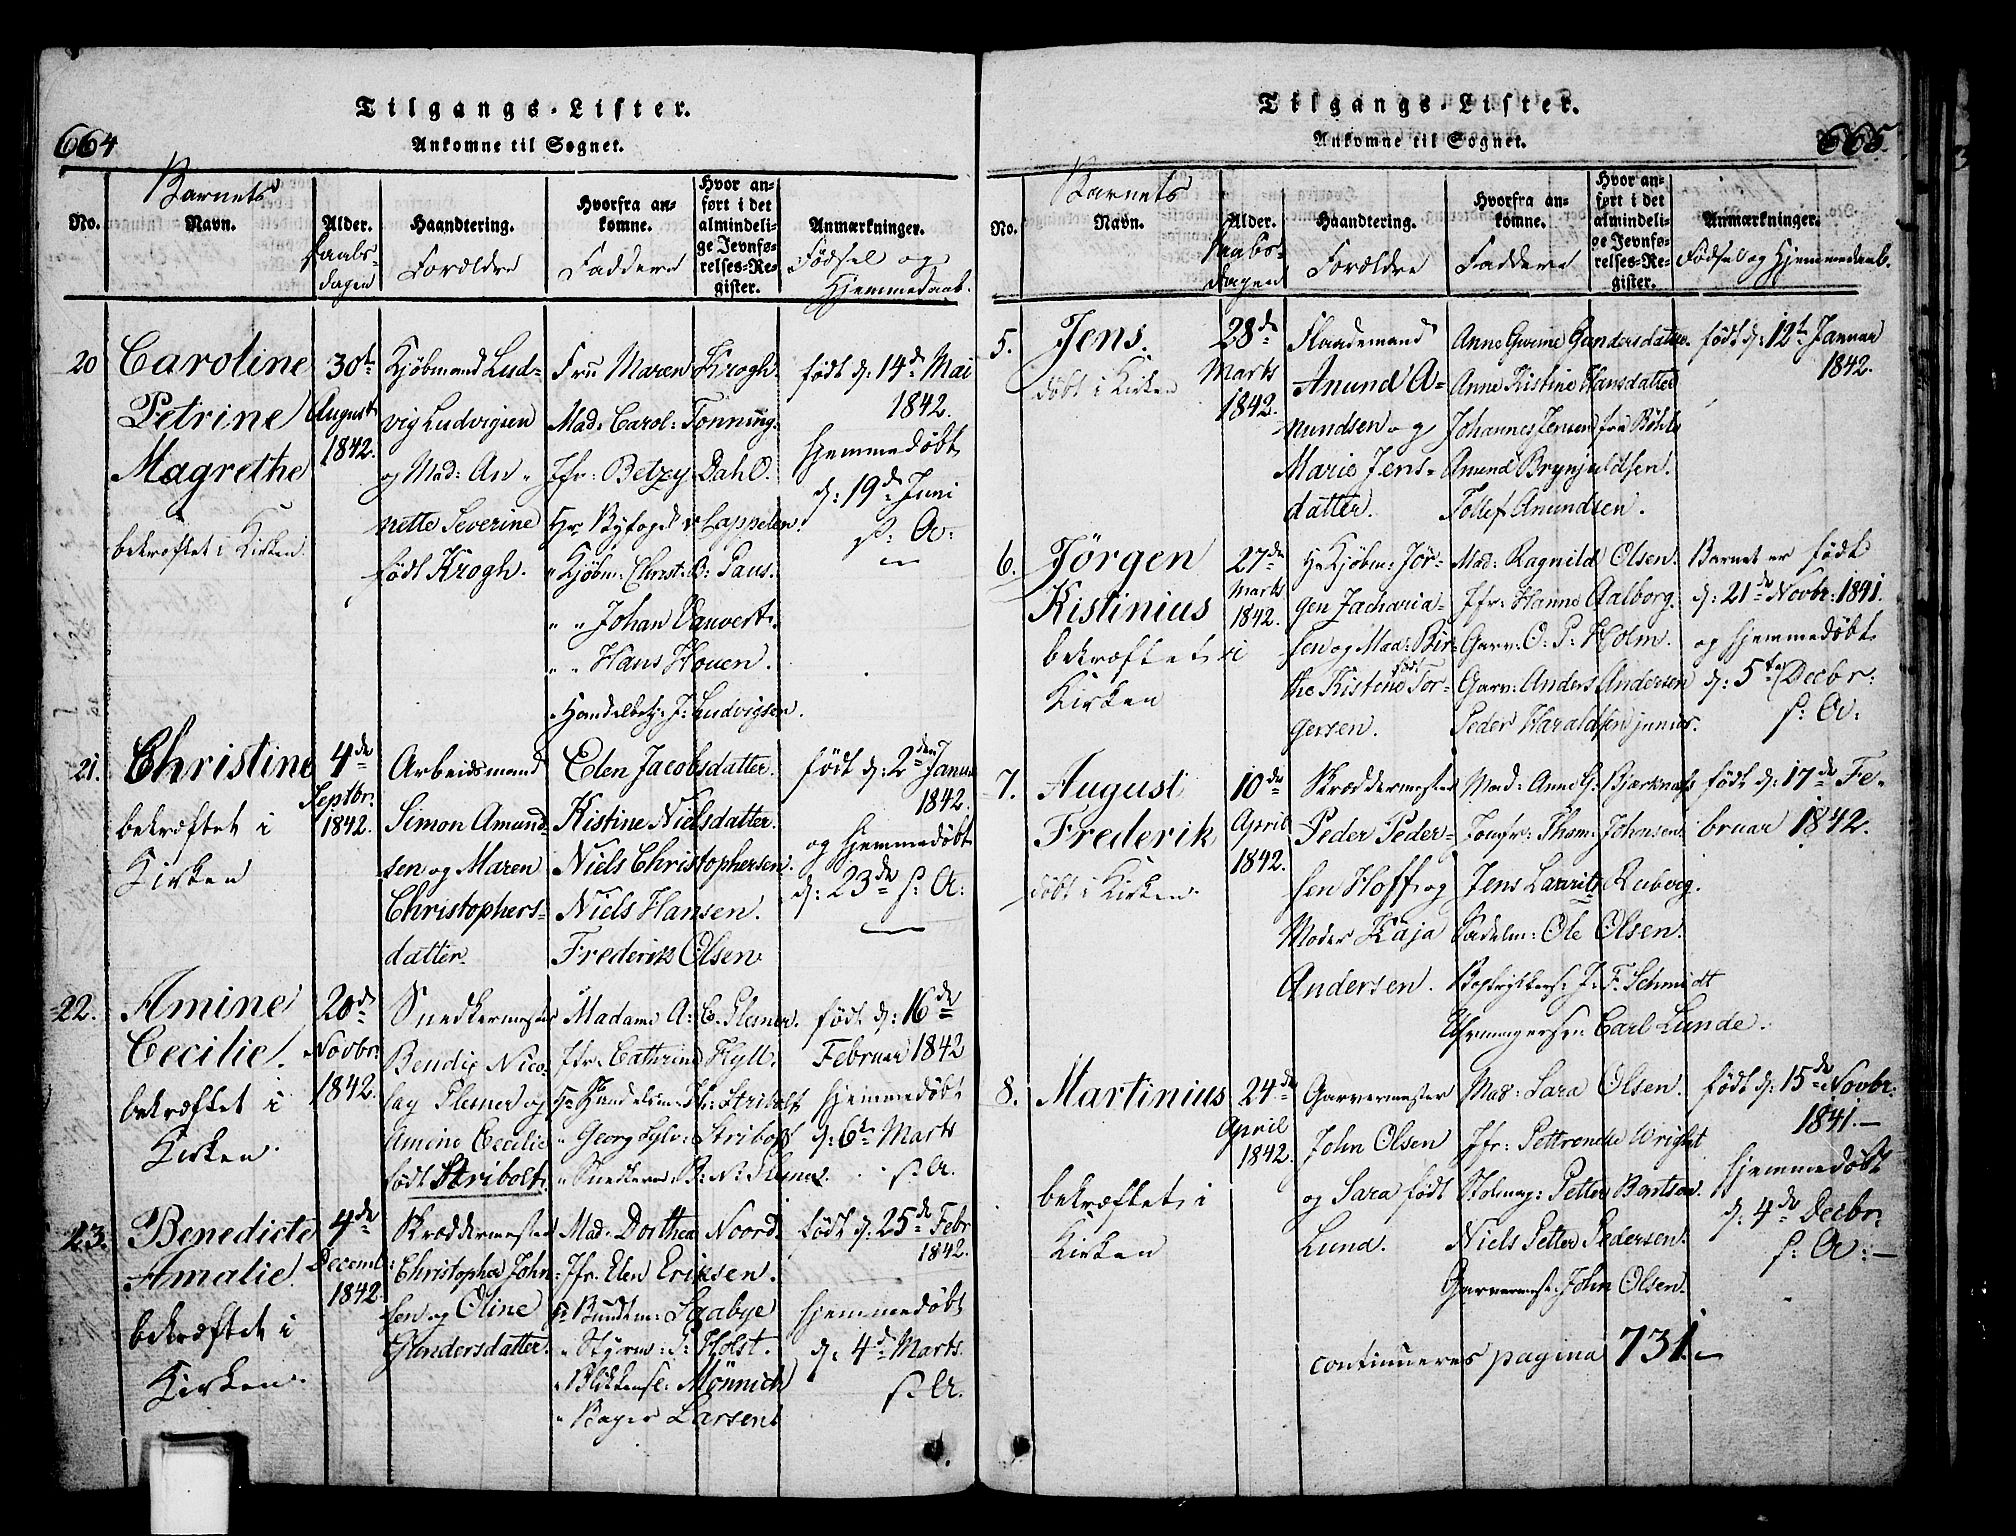 Tilgangs-Lister.
664
Ankomne til Sognet.
Barnets
No.
Navn.
Alder.
Daabs-
dagen
Haandtering.
Forældre
Hvorfra an-
komne.
Faddere
Hvor an-
ført i det
almindeli-
ge Jevnfø-
relses-Re-
gister.
Anmærkninger.
Fødsel og
Hjemmedaab.
20
Caroline
Petrine
Magrethe
bekræftet i Kirken.
30te
August
1842.
Kjøbmand Lud-
vig Ludvigsen
og Mad: An-
nette Severine
født Krogh.
Fru Maren Krogh.
Mad: Carol: Tonning.
Jfr: Betzy Dahl.
Hr. Byfoged v. Cappelen.
" Kjøbm: Christ: B: Paus.
" " Johan Dauvert.
" " Hans Houen.
" Handelbetj: J: Ludvigsen.
født d: 14de Mai
1842.
hjemmedøbt
d: 19de Juni
s: A:
21.
Christine
bekræftet i
Kirken
4de
Septbr.
1842.
Arbeidsmand
Simon Amund-
sen og Maren
Christophers-
datter.
Elen Jacobsdatter.
Kistine Nielsdatter.
Niels Christophersen.
Niels Hansen.
Frederik Olsen
født d: 2den Januar
1842.
og hjemmedøbt
d: 23de s: A:
22.
Amine
Cecilie.
bekræftet i
Kirken.
20de
Novbr.
1842.
Snedkermester
Bendix Nico-
lay Plesner og
Amine Cecilie
født Stribolt.
Madame A: C. Plesner.
Jfr: Cathrine Hyll.
Hr Handelsm: Stribolt
" Georg Sylv: Stribolt
" Snedkerm B: N: Plesner.
født d: 16de
Februar 1842
hjemmedøbt
d: 6te Marts
s. A.
23.
Benedicte
Amalie.
bekræftet i
Kirken.
4de
Decemb:
1842.
Skræddermester
Christopher John-
sen og Oline
Gundersdatter.
Mad. Dorthea Noord.
Jfr. Elen Eriksen.
Hr Bundtm: Saabye
" Styrm: P: Holst.
" Blikkensl: Mönnich
" Bager Larsen.
født d: 25de Febr
1842.
hjemmedøbt
d: 4de Marts.
s. A.
Tilgangs-Lister.
665
Ankomne til Sognet.
Barnets
No.
Navn.
Alder.
Daabs-
dagen
Haandtering.
Forældre
Hvorfra an-
komne.
Faddere
Hvor an-
ført i det
almindeli-
ge Jevnfø-
relses-Re-
gister.
Anmærkninger.
Fødsel og Hjemmedaab.
5.
Jens.
døbt i Kirken
28de
Marts
1842.
Anund A-
nundsen og
Marie Jens-
datter.
Anne Gurine Gundersdatter.
Anne Kistine Hansdatter
Johannes Jensen fra
Amund Brynjuldsen.
Tollef Anundsen.
født d: 12te Januar
1842.
6.
Jørgen
Kistinius
bekræftet i
Kirken
27de
Marts
1842.
Hr Kjøbm: Jör-
gen Zacharia-
sen og Mad: Bir-
the Kistine født Tor-
gersen.
Mad: Ragnild Olsen.
Jfr: Hanne Aalborg.
Garv: O. P: Holm.
Garv: Anders Andersen
Peder Haraldsen junior.
Barnet er født
d: 21de Novbr: 1841.
og hjemmedøbt
d: 5te Decbr:
s: A:
7.
August
Frederik
døbt i Kirken.
10de
April
1842.
Skræddermester
Peder Peder-
sen Hoff og
Moder Kaja
Andersen.
Mad: Anne G. Bjerknæs
Jomfr: Thom: Johnsen.
Jens Lauritz Ruberg.
Sadelm: Ole Olsen.
Bogtrykkers: J: F. Schmidt
Uhrmagersv: Carl Lunde.
født d: 17de Fe-
bruar 1842.
8.
Martinius
bekræftet i
Kirken
24de
April
1842.
Garvermester
John Olsen
og Sara født
Lund.
Mad: Sara Olsen.
Jfr: Pettronelle Wright
Stolmag: Petter Bentsen.
Niels Petter Pedersen.
Garvermest: John Olsen.
født d: 15de Novbr.
1841.—
hjemmedøbt
d: 4de Decbr:
s: A:—
continueres pagina 731.